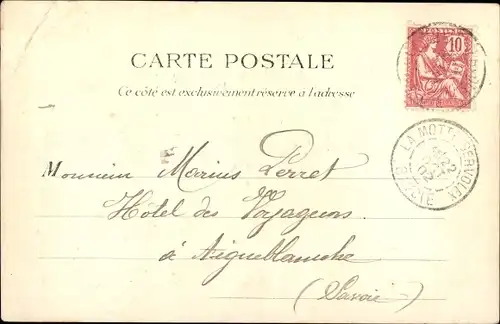 CARTE POSTALE
Ce côté est exclusivement réservé à l'adresse
POSTES
10
LA MOTTE-SERVOLEX
SAVOIE
Monsieur Marius Perret
Hôtel des Voyageurs
à Aigueblanche
(Savoie)